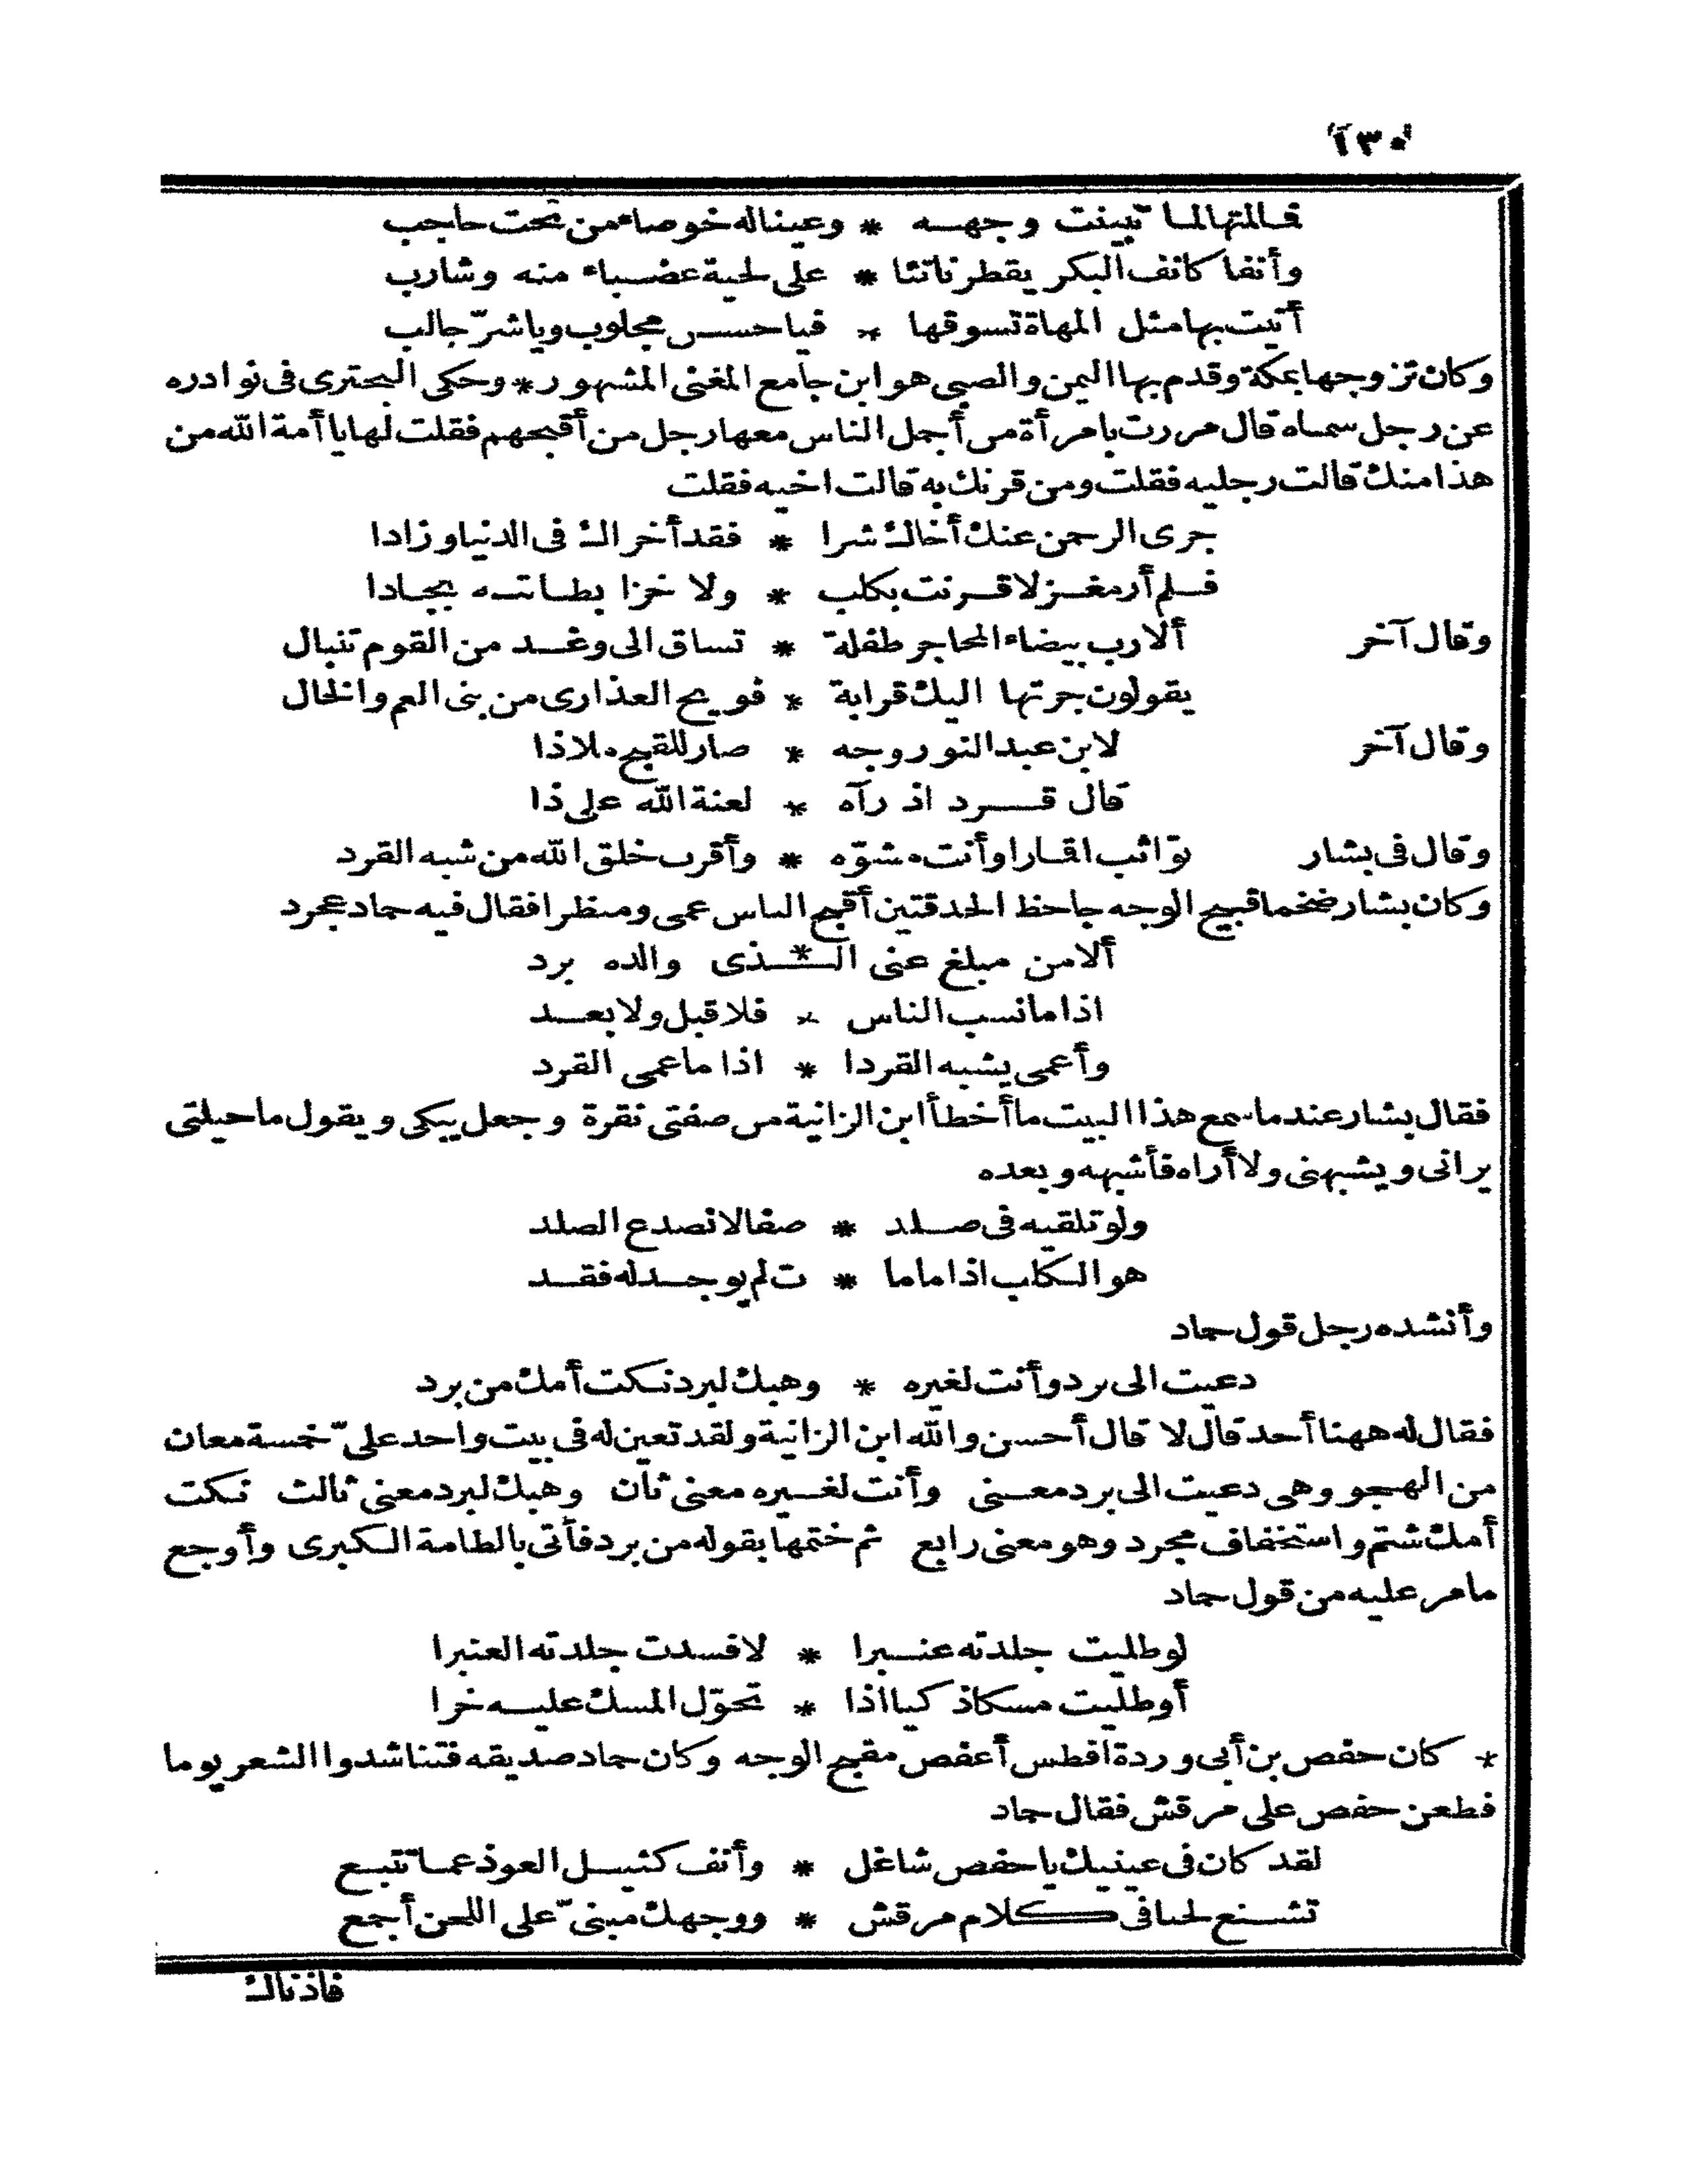 ١٣٠
فخالتها لما تبينت وجهه * وعيناله خوصاء من تحت حاجب
وأنفا كانف البكر يقطر ناتئا * على لحية عضباء منه وشارب
أتيت بها مثل المهاة تسوقها * فيا حسن مجلوب ويا شرّ جالب
وكان تزوجها بمكة وقدم بها اليمن والصبى هو ابن جامع المغنى المشهور * وحكى البحترى فى نوادره
عن رجل سماه قال مررت بامرأة من أجمل الناس معها رجل من أقبحهم فقلت لها يا أمة الله من
هذا منك قالت رجليه فقلت ومن قرنك به قالت اخيه فقلت
جزى الرحمن عنك أخاك شرا * فقد أخزاك فى الدنيا وزادا
فلم أر مغزلا قرنت بكلب * ولا خزا بطانته بجادا
وقال آخر ألا رب بيضاء المحاجر طفلة * تساق الى وغد من القوم تنبال
يقولون جرتها اليك قرابة * فويح العذارى من بنى العم والخال
وقال آخر لابن عبد النور وجه * صار للقبح ملاذا
قال قرد اذ رآه * لعنة الله على ذا
وقال فى بشار تواثب اقمارا وأنت مشوّه * وأقرب خلق الله من شبه القرد
وكان بشار ضخما قبيح الوجه جاحظ الحدقتين أقبح الناس عمى ومنظرا فقال فيه حماد عجرد
ألا من مبلغ عنى الـ * ـذى والده برد
اذا ما نسب الناس * فلا قبل ولا بعد
وأعمى يشبه القردا * اذا ما عمى القرد
فقال بشار عندما سمع هذا البيت ما أخطأ ابن الزانية من صفتى نقرة وجعل يبكى ويقول ما حيلتى
يرانى ويشبهنى ولا أراه فأشبهه وبعده
ولو تلقيه فى صلد * صفا لانصدع الصلد
هو الكلب اذا ما ما * ت لم يوجد له فقد
وأنشده رجل قول حماد
دعيت الى برد وأنت لغيره * وهبك لبرد نكت أمك من برد
فقال له ههنا أحد قال لا قال أحسن والله ابن الزانية ولقد تعين له فى بيت واحد علىّ خمسة معان
من الهجو وهى دعيت الى برد معنى وأنت لغيره معنى ثان وهبك لبرد معنى ثالث نكت
أمك شتم واستخفاف مجرد وهو معنى رابع ثم ختمها بقوله من برد فأتى بالطامة الكبرى وأوجع
ما مر عليه من قول حماد
لو طليت جلدته عنبرا * لافسدت جلدته العنبرا
أو طليت مسكا ذكيا اذا * تحوّل المسك عليه خرا
* كان حفص بن أبى وردة افطس أعفص مقبح الوجه وكان حماد صديقه فتناشدوا الشعر يوما
فطعن حفص على مرقش فقال حماد
لقد كان فى عينيك يا حفص شاغل * وأنف كثيل العوذ عما تتبع
تشنع لحنا فى كلام مرقش * ووجهك مبنىّ على اللحن أجمع
فاذناك